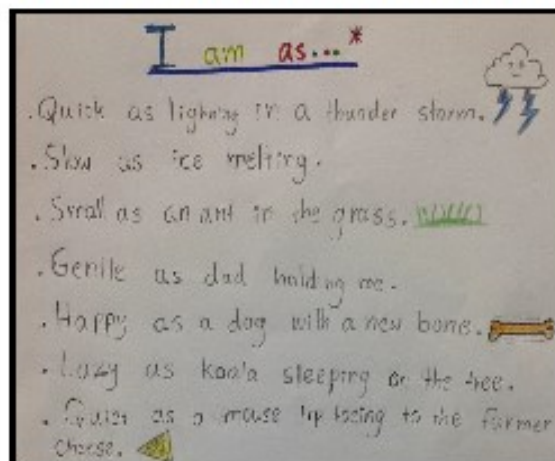 I am as...*
. Quick as lightning in a thunder storm.
. Slow as ice melting.
. Small as an ant in the grass.
. Gentle as dad holding me.
. Happy as a dog with a new bone.
. Lazy as koala sleeping on the tree.
. Quiet as a mouse tip toeing to the farmer
cheese.